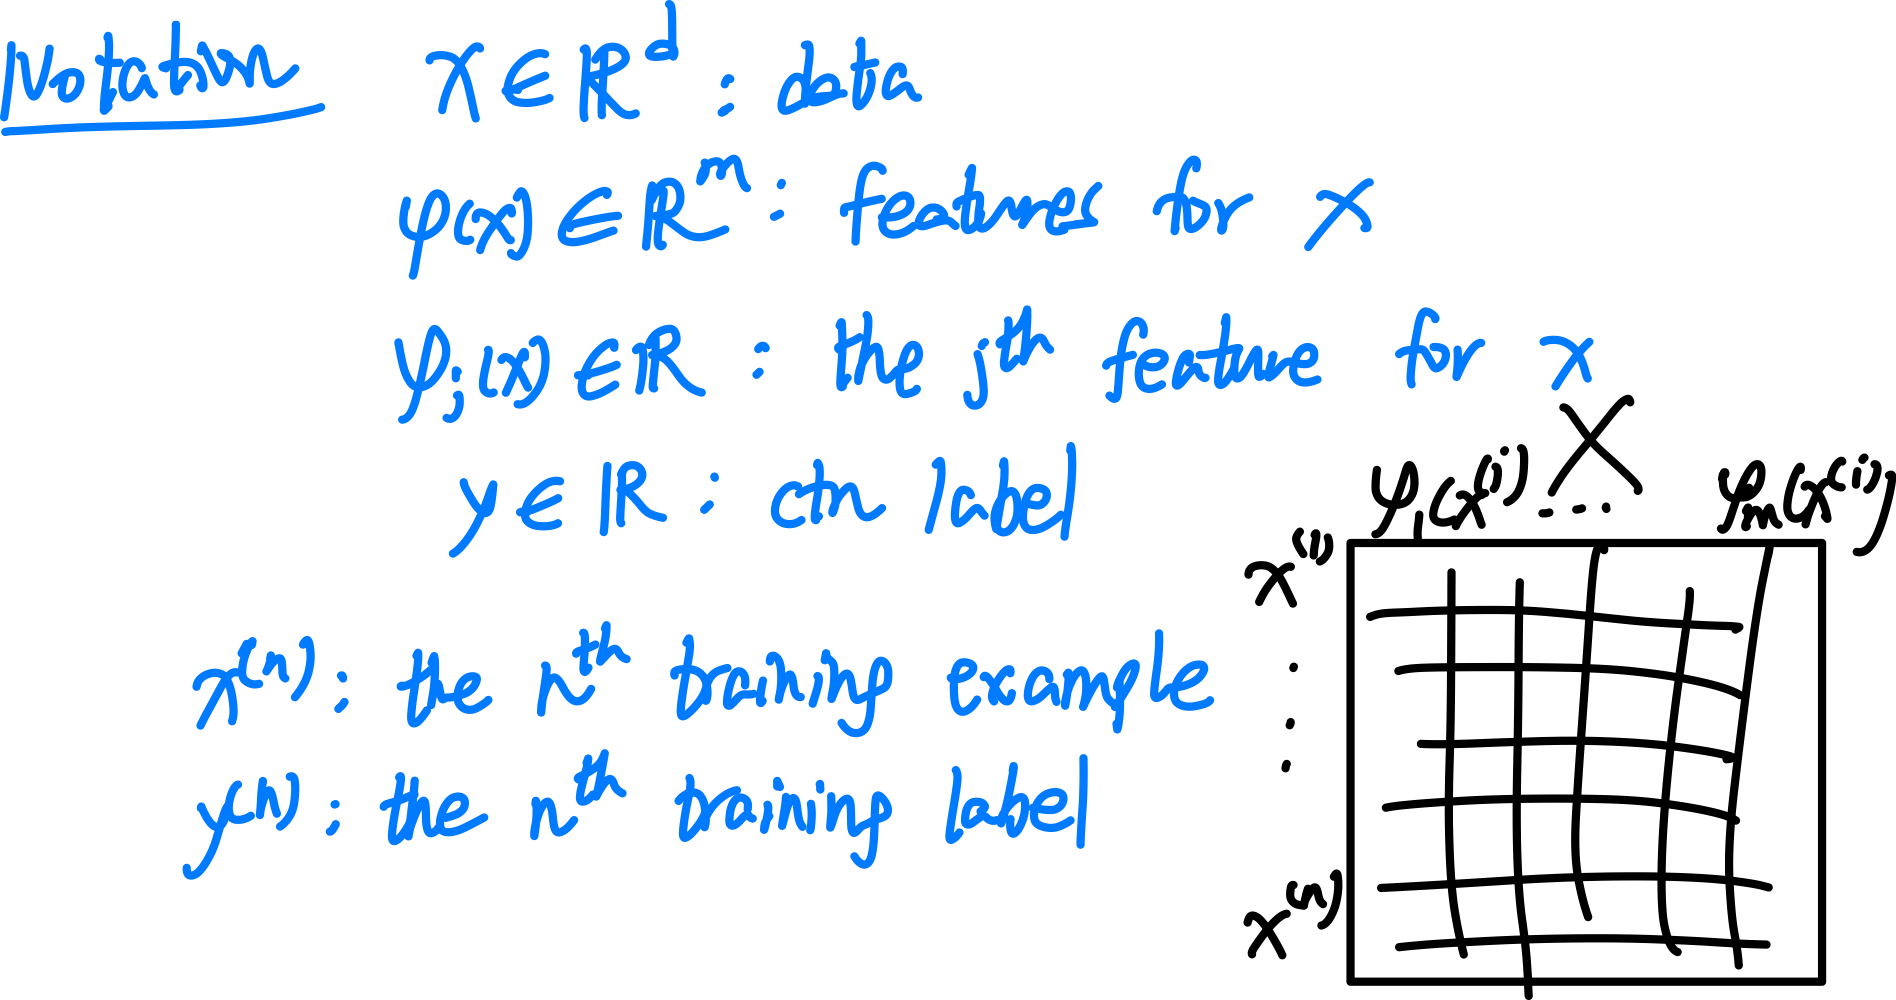 Notation x ∈ ℝ^d : data
φ(x) ∈ ℝ^m : features for x
φ_j(x) ∈ ℝ : the j^th feature for x
y ∈ ℝ : ctn label
x^(n) : the n^th training example
y^(n) : the n^th training label
X
φ_1(x^(i)) ... φ_m(x^(i))
x^(1)
⋮
x^(n)